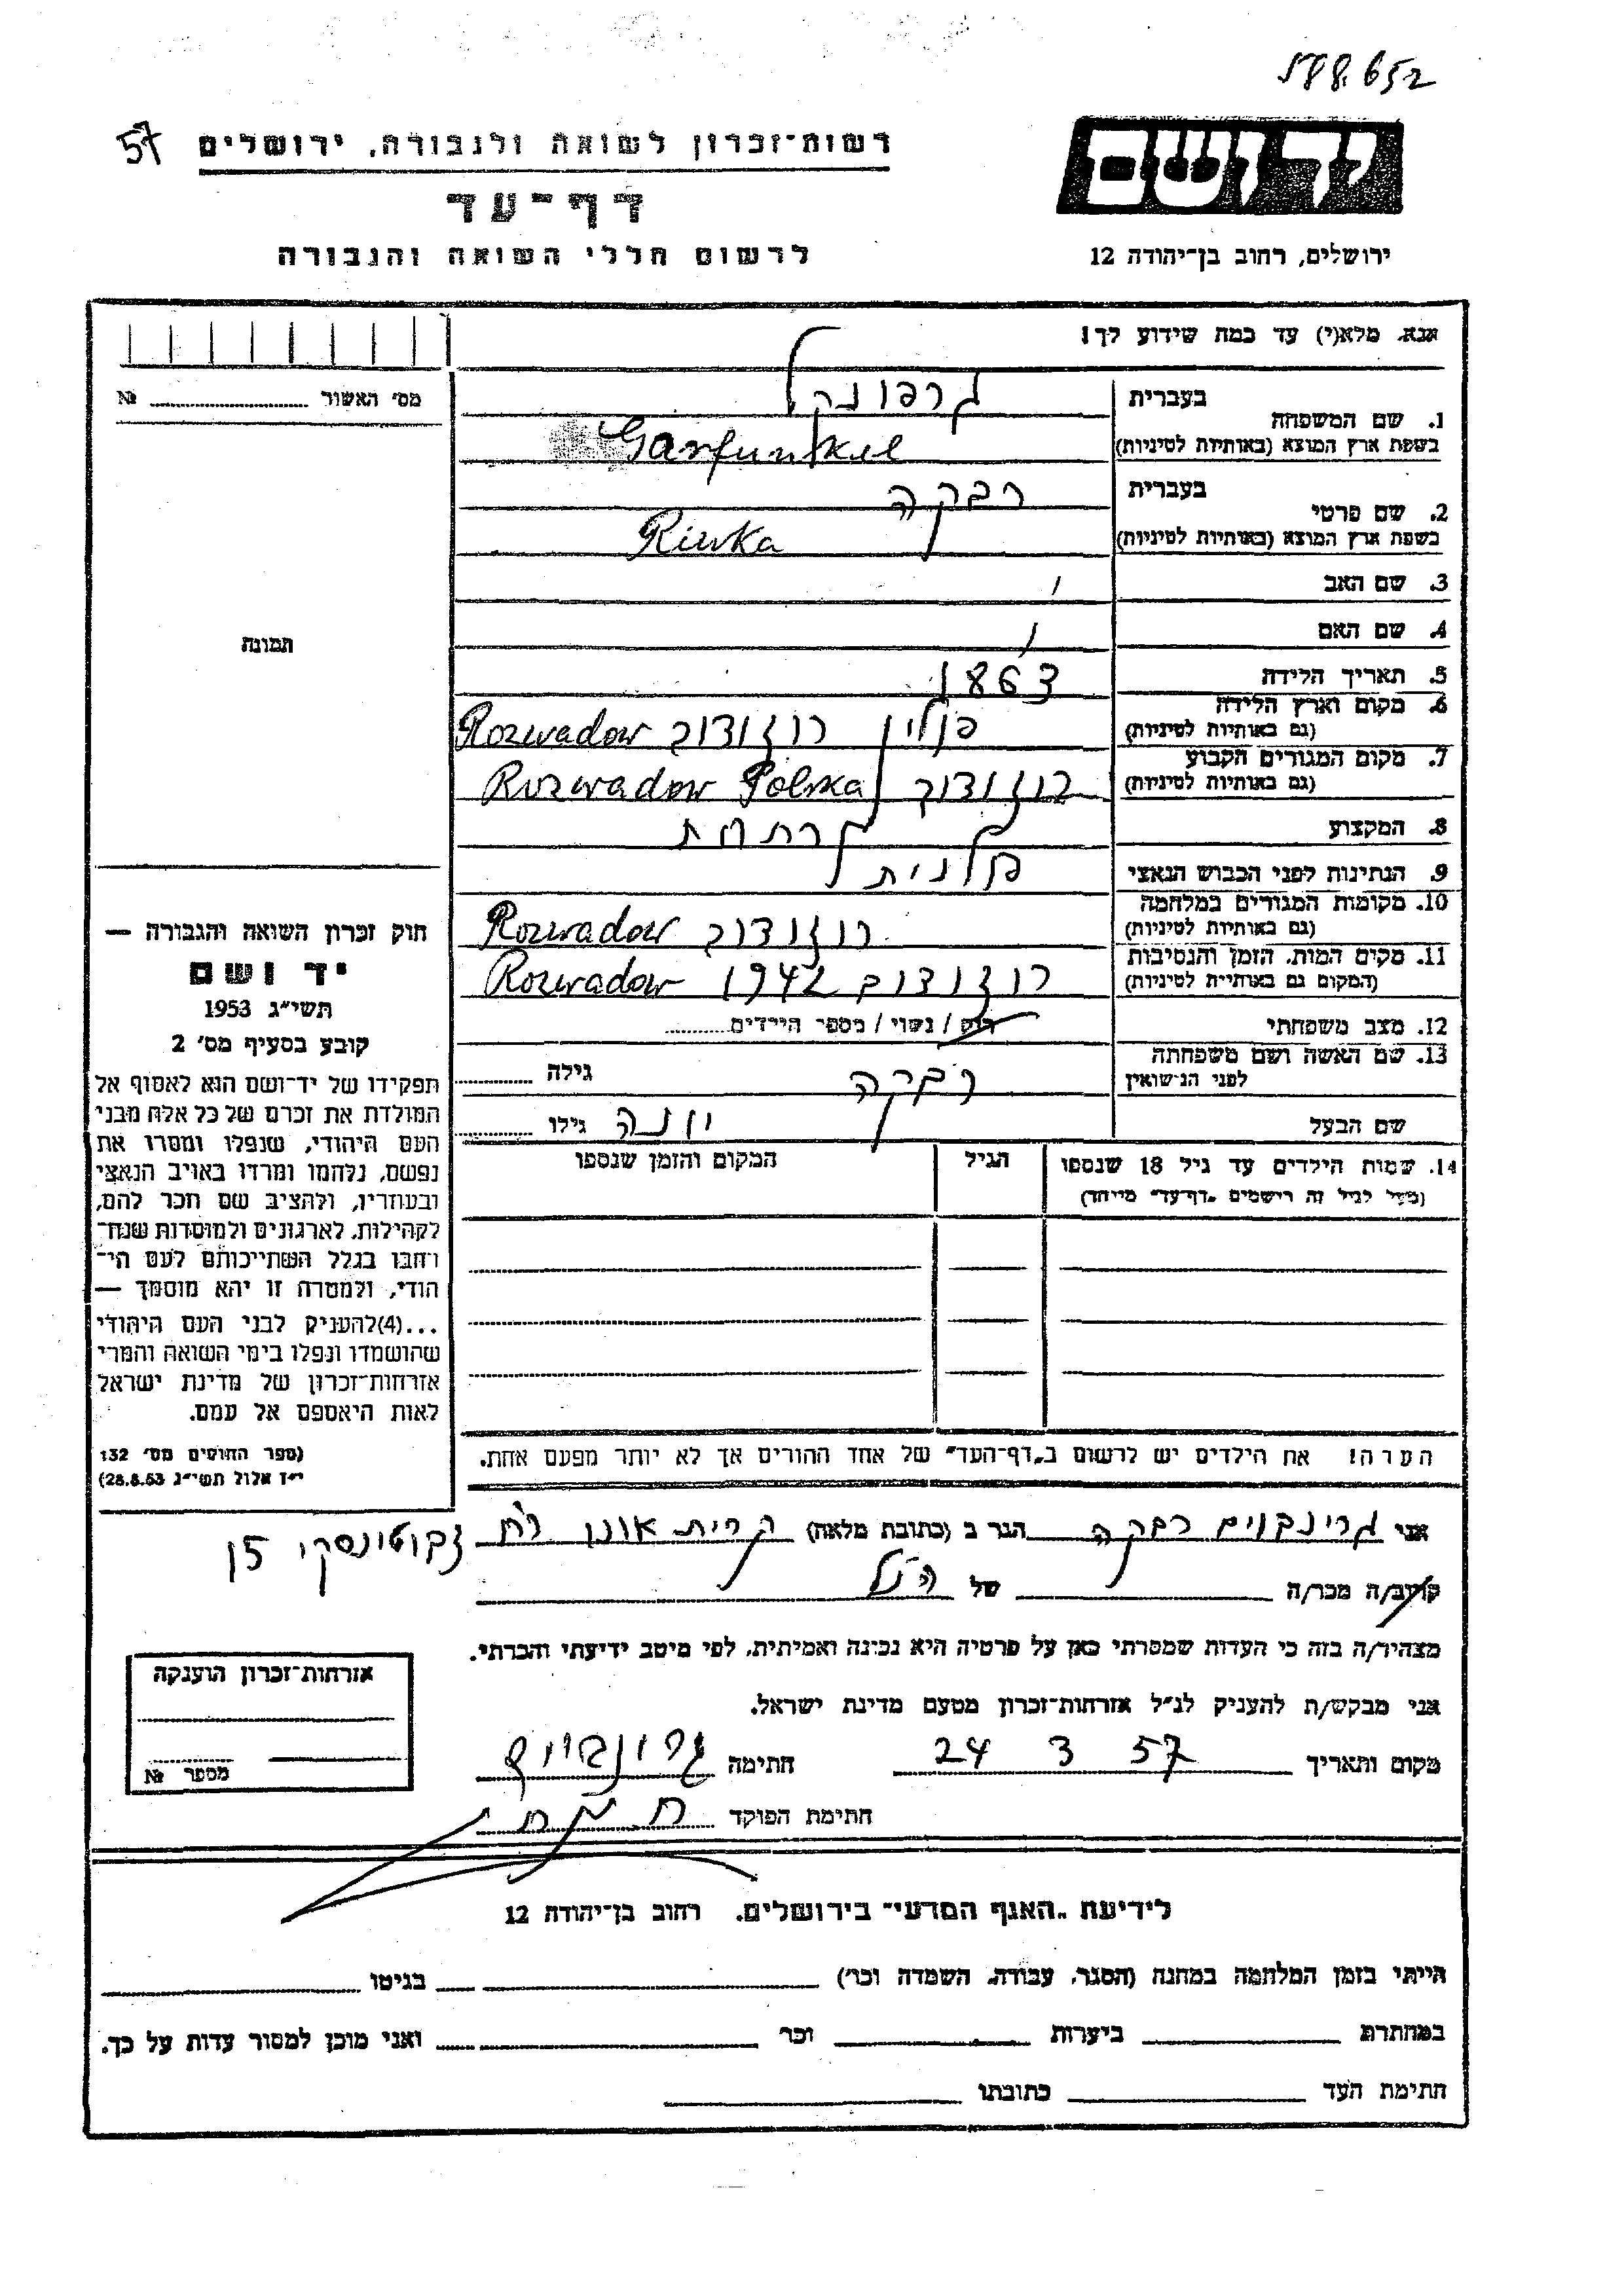 588.652
57
רשות־זכרון לשואה ולגבורה, ירושלים
יד ושם
דף־עד
לרשום חללי השואה והגבורה
ירושלים, רחוב בן־יהודה 12
אנא, מלא(י) עד כמה שידוע לך!
מס' האשור № ...............
1. שם המשפחה בעברית גרפונקל
בשפת ארץ המוצא (באותיות לטיניות) Garfunkel
2. שם פרטי בעברית רבקה
בשפת ארץ המוצא (באותיות לטיניות) Riwka
3. שם האב
4. שם האם
תמונה
5. תאריך הלידה 1863
6. מקום וארץ הלידה (גם באותיות לטיניות) פולין רוזודוב Rozwadow
7. מקום המגורים הקבוע (גם באותיות לטיניות) רוזודוב Rozwadow Polska
8. המקצוע
9. הנתינות לפני הכבוש הנאצי פולנית
10. מקומות המגורים במלחמה (גם באותיות לטיניות) רוזודוב Rozwadow
11. מקום המות, הזמן והנסיבות (המקום גם באותיות לטיניות) רוזודוב 1942 Rozwadow
12. מצב משפחתי רוק / נשוי / מספר הילדים..........
13. שם האשה ושם משפחתה לפני הנישואין רבקה גילה ..........
שם הבעל יונה גילו ..........
14. שמות הילדים עד גיל 18 שנספו הגיל המקום והזמן שנספו
(מעל לגיל זה רישמים „דף־עד” מייחד)
הערה! את הילדים יש לרשום ב„דף־העד” של אחד ההורים אך לא יותר מפעם אחת.
חוק זכרון השואה והגבורה —
יד ושם
תשי״ג 1953
קובע בסעיף מס' 2
תפקידו של יד־ושם הוא לאסוף אל
המולדת את זכרם של כל אלה מבני
העם היהודי, שנפלו ומסרו את
נפשם, נלחמו ומרדו באויב הנאצי
ובעוזריו, ולהציב שם וזכר להם,
לקהילות, לארגונים ולמוסדות שנח־
רחבו בגלל השתייכותם לעם הי־
הודי, ולמטרה זו יהא מוסמך —
...(4)להעניק לבני העם היהודי
שהושמדו ונפלו בימי השואה והמרי
אזרחות־זכרון של מדינת ישראל
לאות היאספם אל עמם.
(ספר החוקים מס' 132
י״ז אלול תשי״ג 28.8.53)
אני גרינבוים רבקה הגר ב (כתובת מלאה) קרית אונו רח זבוטינסקי 15
קרוב/ה מכר/ה של הנ״ל
מצהיר/ה בזה כי העדות שמסרתי כאן על פרטיה היא נכונה ואמיתית, לפי מיטב ידיעתי והכרתי.
אני מבקש/ת להעניק לנ״ל אזרחות־זכרון מטעם מדינת ישראל.
מקום ותאריך 24 3 57 חתימה
חתימת הפוקד
אזרחות־זכרון הוענקה
מספר №
לידיעת „האגף המדעי” בירושלים, רחוב בן־יהודה 12
הייתי בזמן המלחמה במחנה (הסגר, עבודה, השמדה וכר') בגיטו
במחתרת ביערות וכר ואני מוכן למסור עדות על כך.
חתימת העד כתובתו